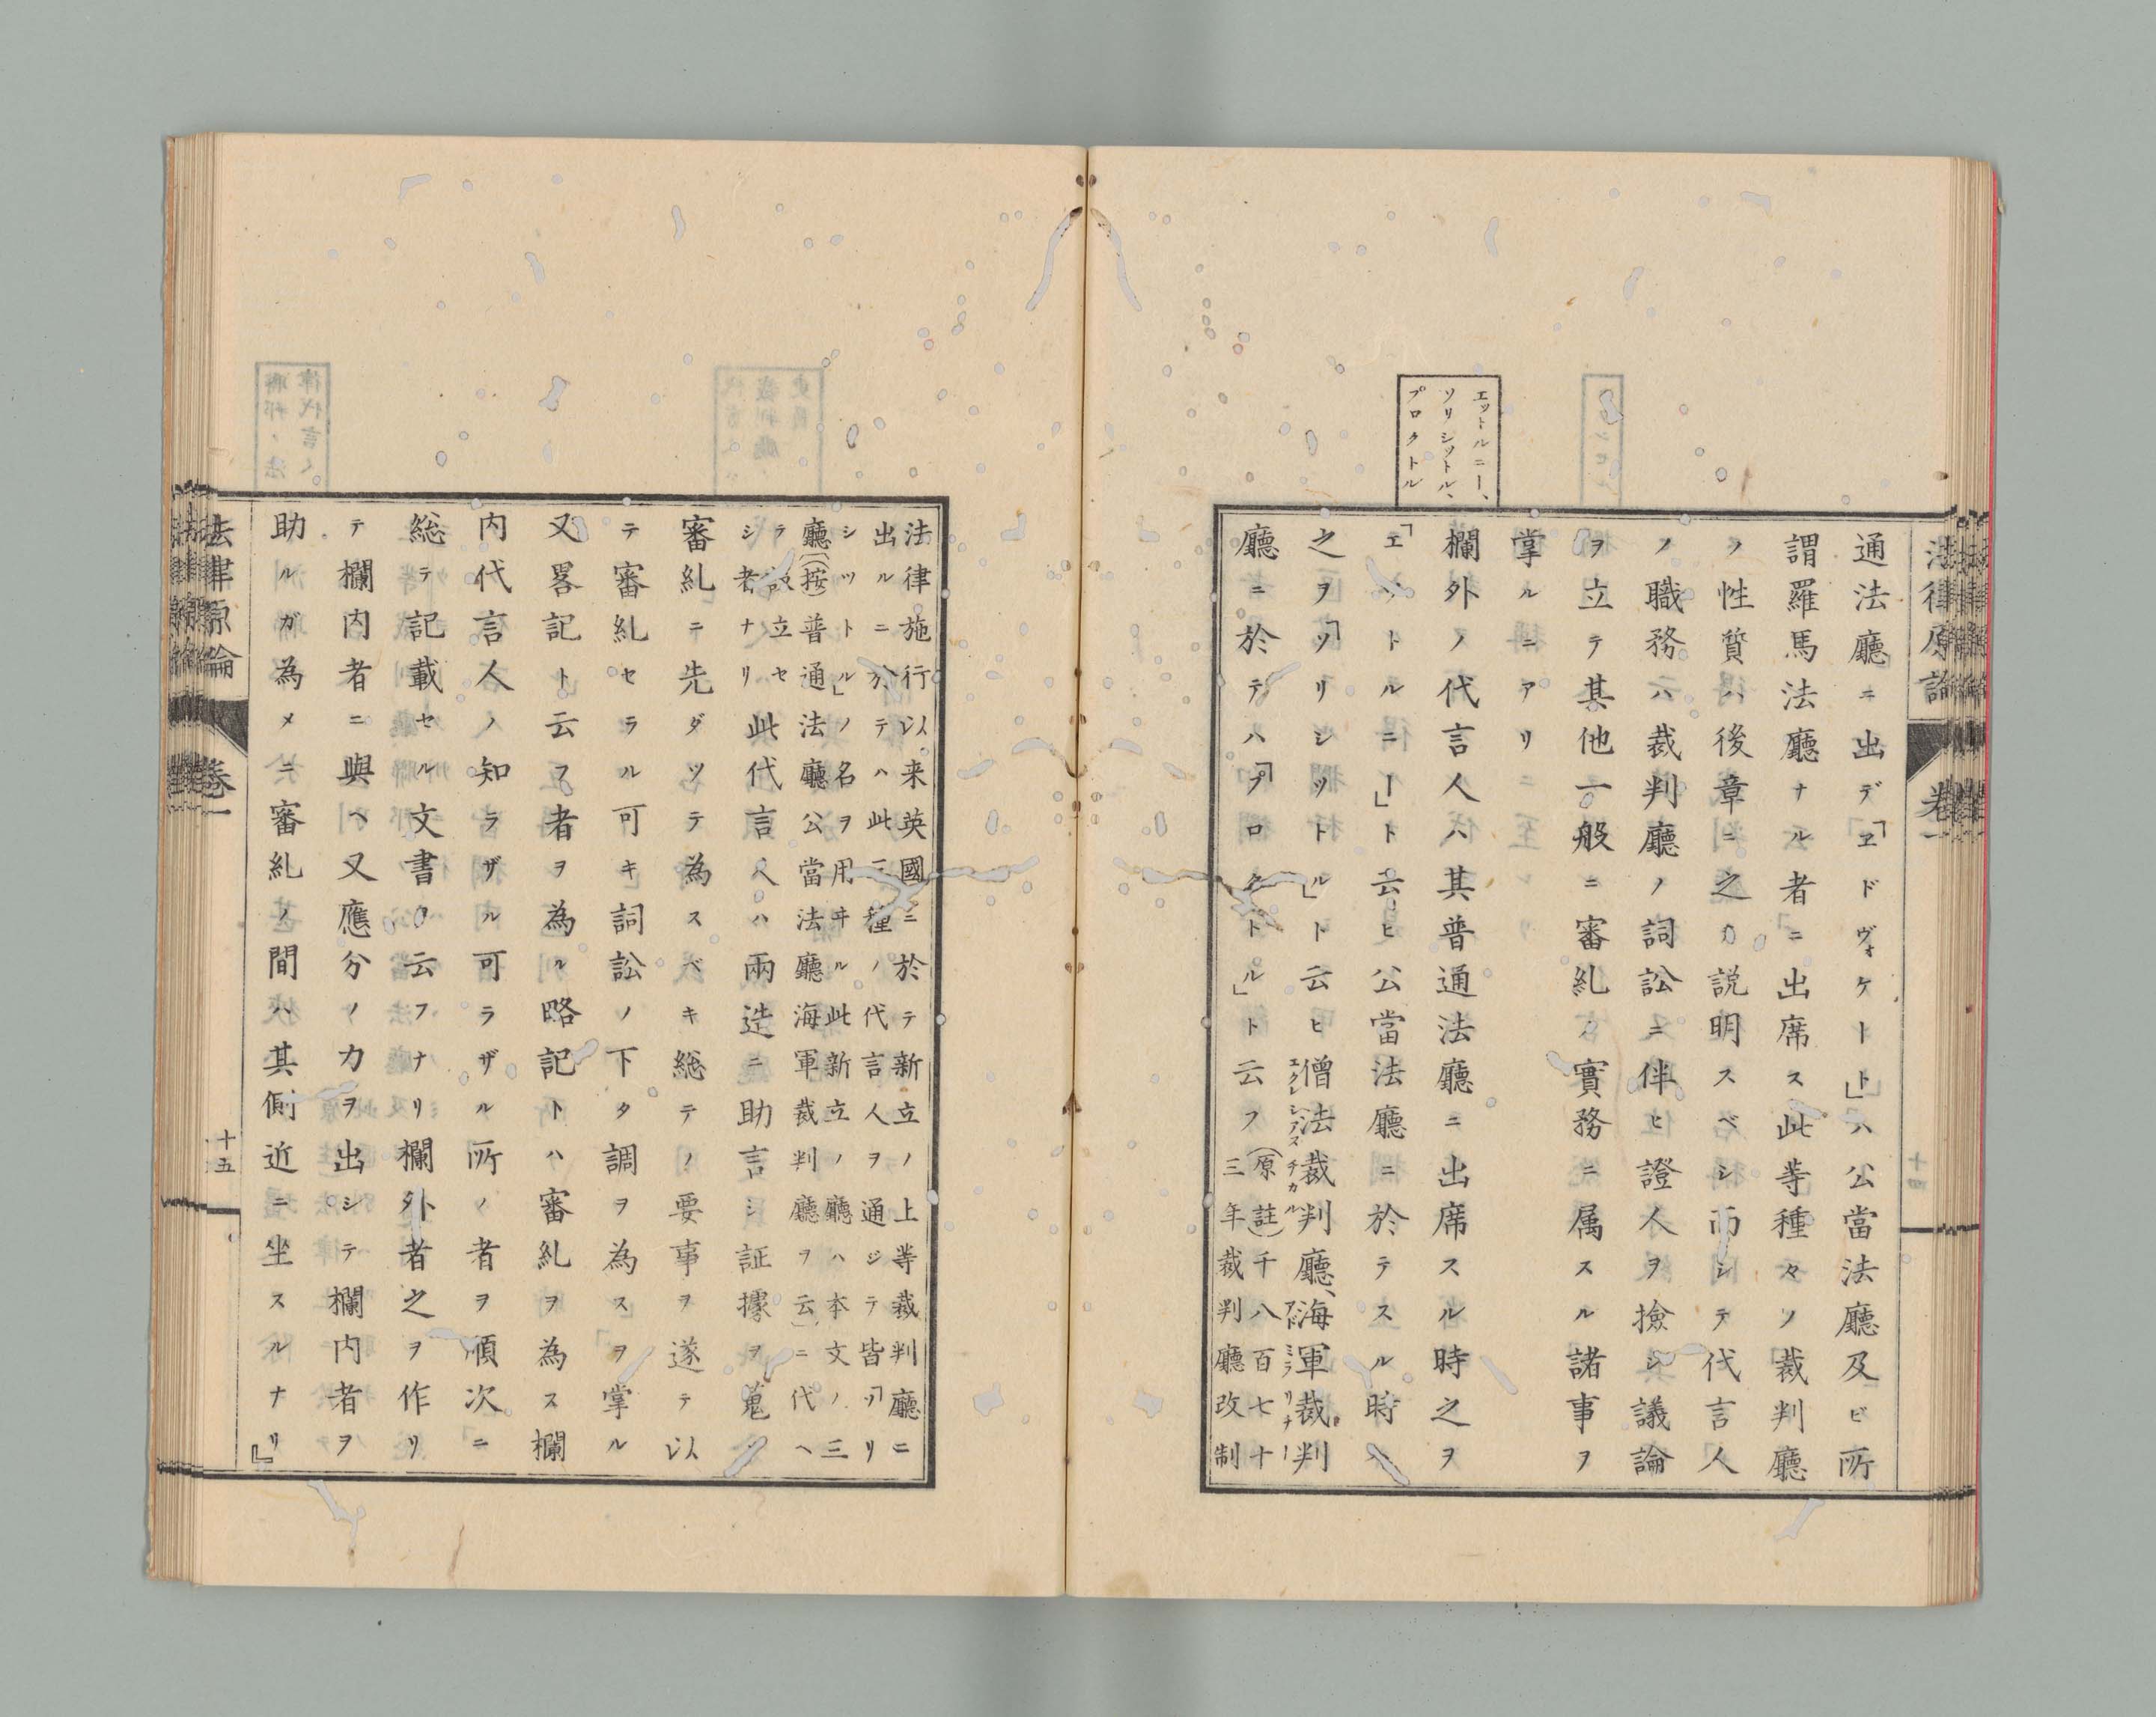 法律原論
卷一
エットルニー、
ソリシットル、
プロクトル
通法廳ニ出デ「エドヴォケート」ハ公當法廳及ビ所
謂羅馬法廳ナル者ニ出席ス此等種々ノ裁判廳
ノ性質ハ後章ニ之カ説明スベシ而シテ代言人
ノ職務ハ裁判廳ノ詞訟ニ伴ヒ證人ヲ撿シ議論
ヲ立テ其他一般ニ審糺ノ實務ニ属スル諸事ヲ
掌ルニアリ
欄外ノ代言人ハ其普通法廳ニ出席スル時之ヲ
「エットルニー」ト云ヒ公當法廳ニ於テスル時ハ
之ヲ「ソリシットル」ト云ヒ僧法裁判廳、海軍裁判
エクレシアスチカル
アドミラリチー
廳ニ於テハ「プロクトル」ト云フ
(原註)千八百七十
三年裁判廳改制
法律施行以来英國ニ於テ新立ノ上等裁判廳ニ
出ルニ於テハ此三種ノ代言人ヲ通ジテ皆「ソリ
シットル」ノ名ヲ用ヰル此新立ノ廳ハ本文ノ三
廳(按)普通法廳公當法廳海軍裁判廳ヲ云)ニ代ヘ
テ設立セ
シ者ナリ
此代言人ハ兩造ニ助言シ証據ヲ蒐
審糺ニ先ダツテ為スベキ総テノ要事ヲ遂テ以
テ審糺セラル可キ詞訟ノ下タ調ヲ為スヲ掌ル
又畧記ト云フ者ヲ為ル略記トハ審糺ヲ為ス欄
内代言人ノ知ラザル可ラザル所ノ者ヲ順次ニ
総テ記載セル文書ヲ云フナリ欄外者之ヲ作リ
テ欄内者ニ與ヘ又應分ノ力ヲ出シテ欄内者ヲ
助ルガ為メニ審糺ノ間ハ其側近ニ坐スルナリ」
法律原論
卷一
十五